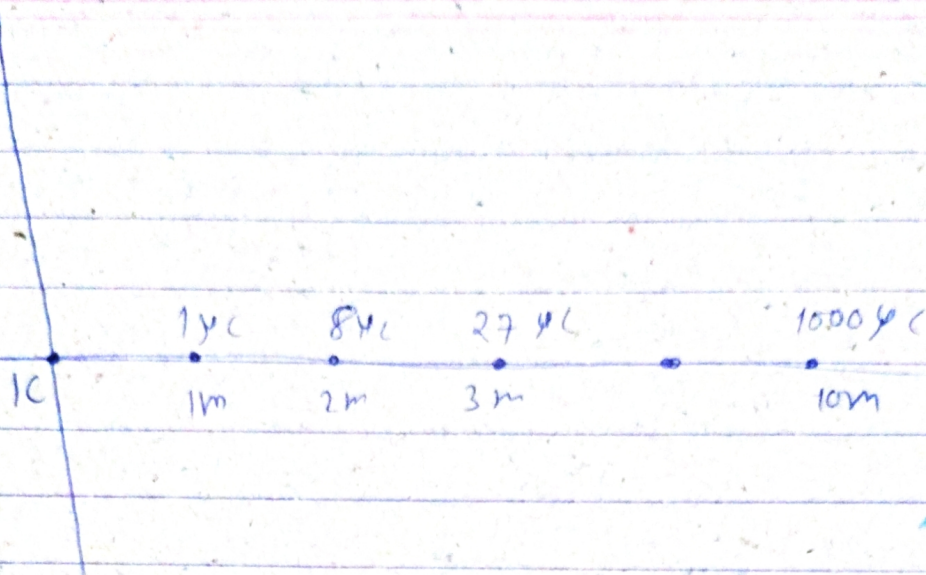 1μC 8μC 27μC 1000μC
1C 1m 2m 3m 10m